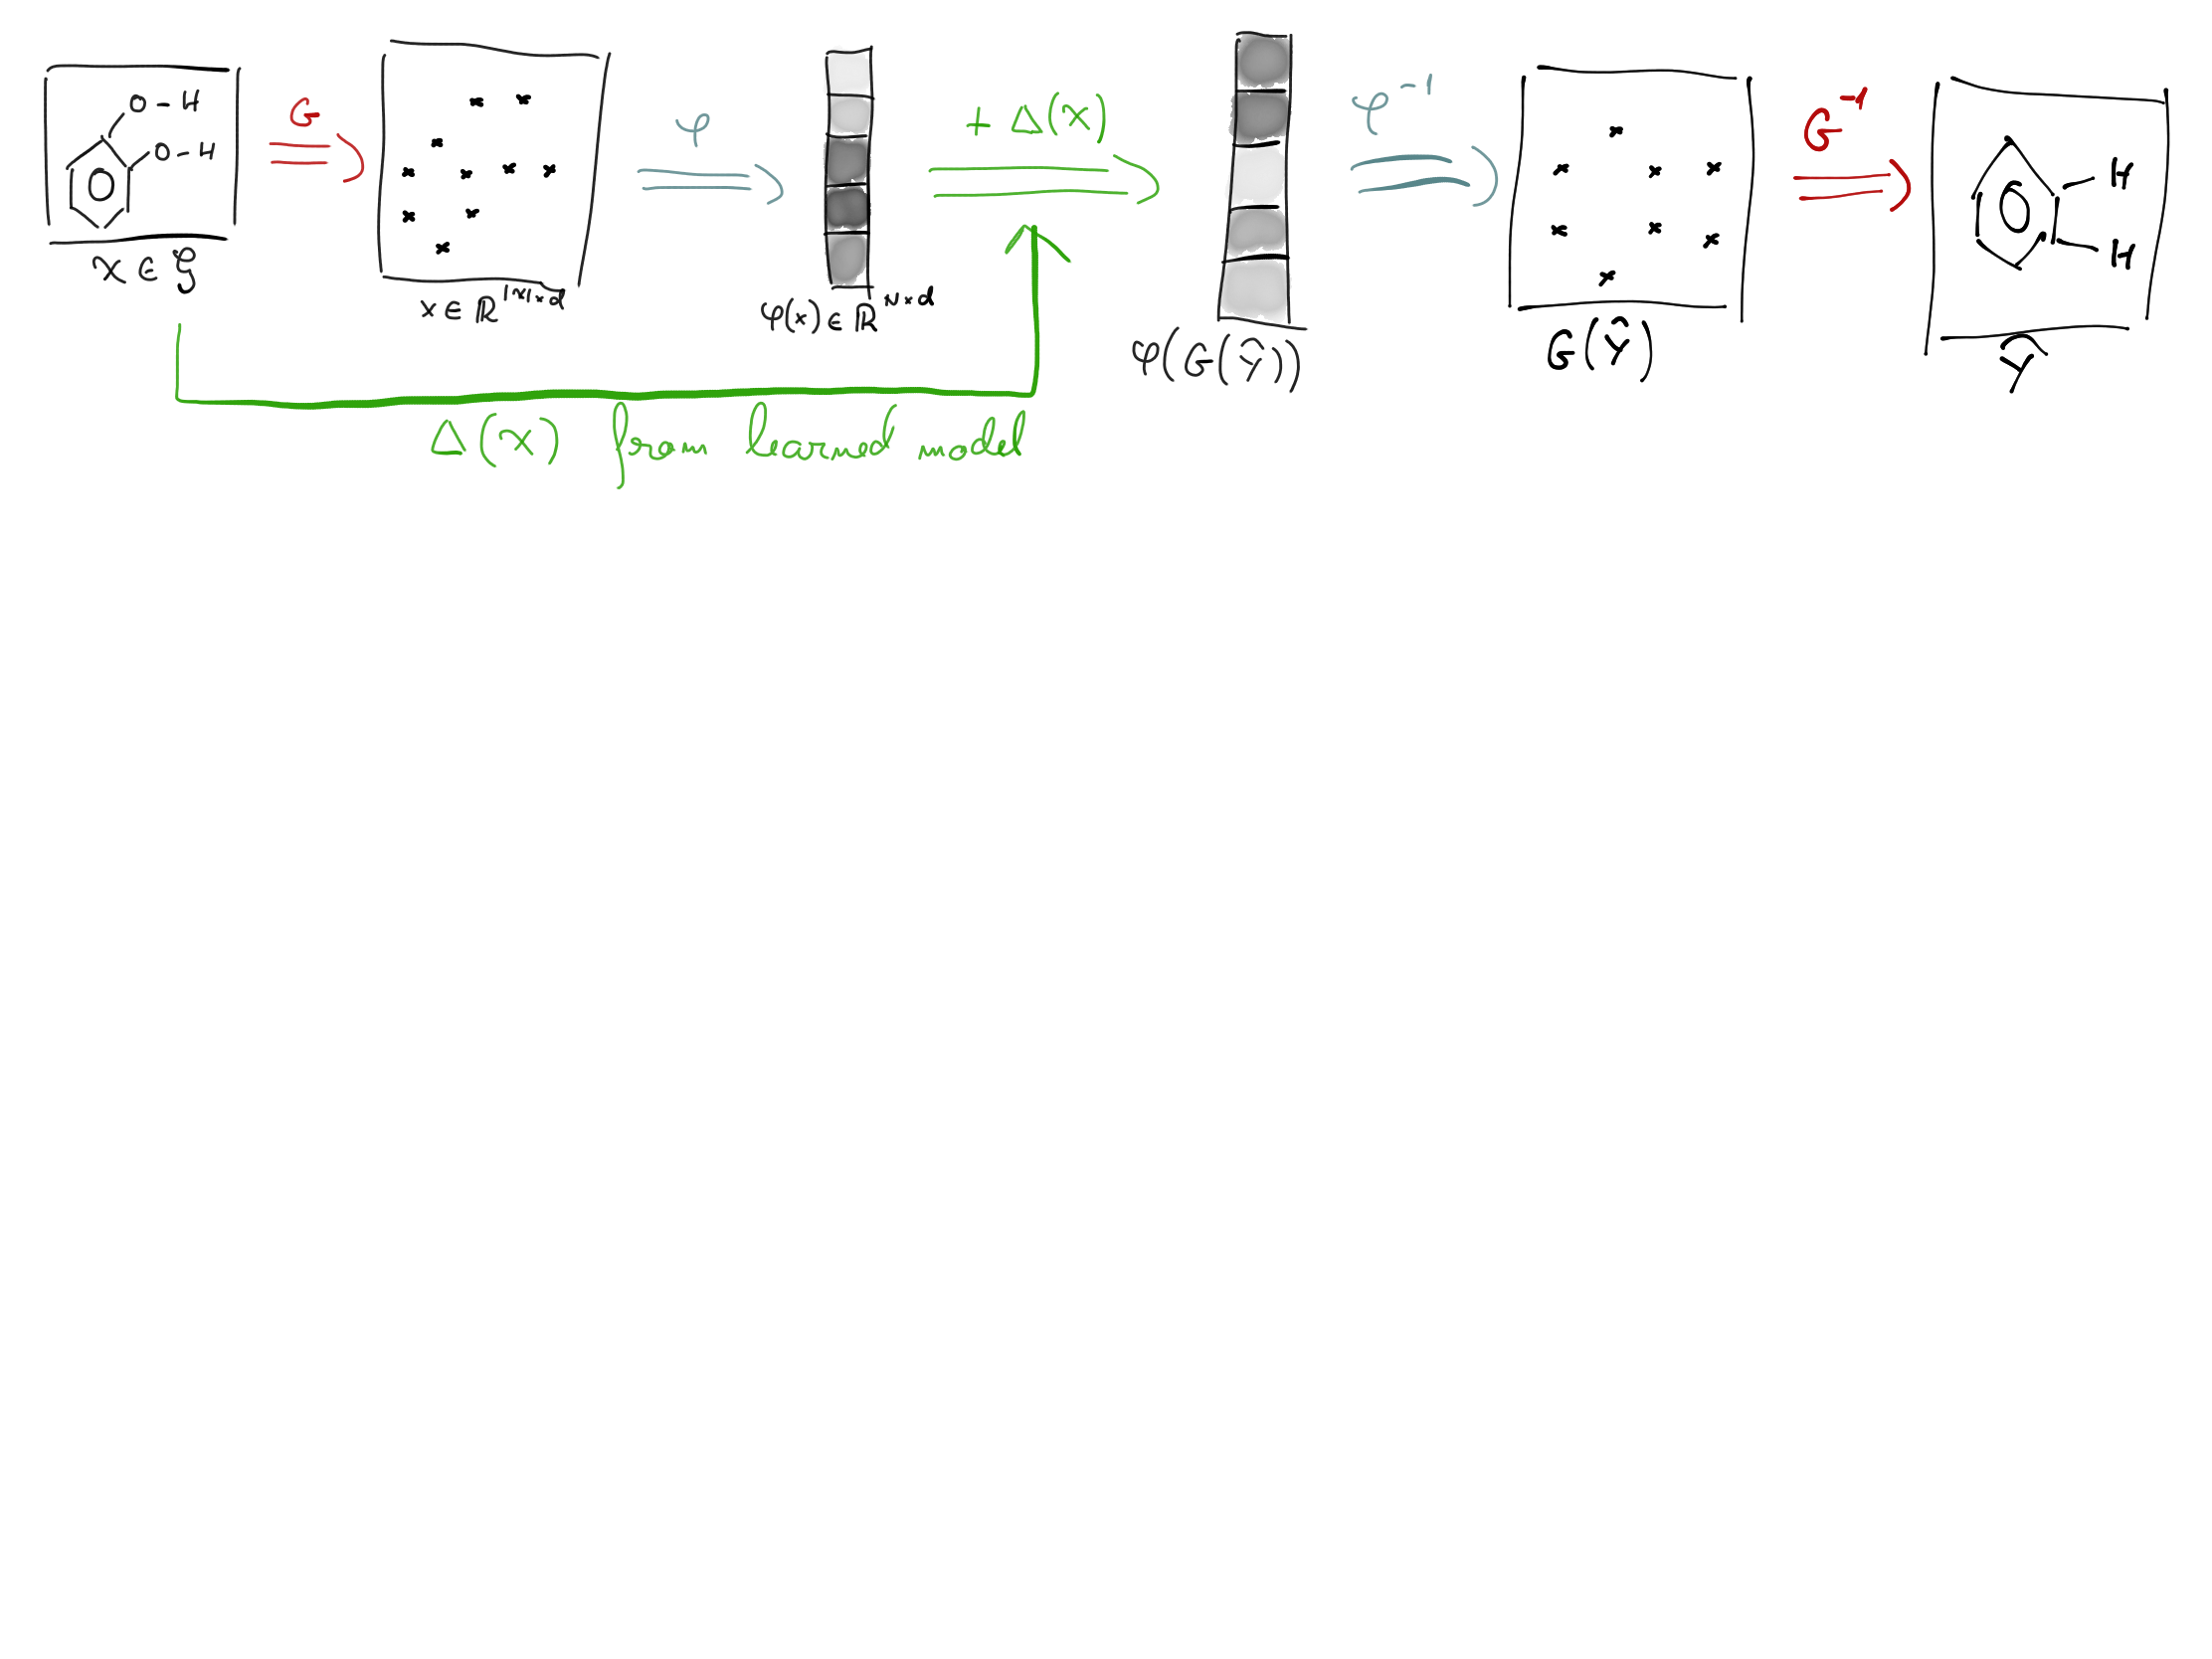 O - H
O - H
O
X ∈ 𝒢
G
x ∈ ℝ^{|X|×d}
φ
φ(x) ∈ ℝ^{N×d}
+ Δ(X)
φ(G(Ŷ))
φ⁻¹
G(Ŷ)
G⁻¹
H
O
H
Ŷ
Δ(X) from learned model